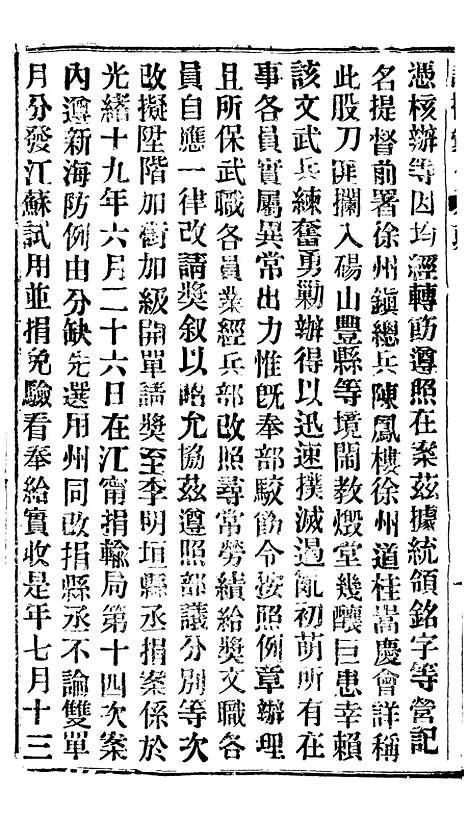 憑核辦等因均經轉飭遵照在案茲據統領銘字等營記
名提督前署徐州鎭總兵陳鳳樓徐州道桂嵩慶會詳稱
此股刀匪攔入碭山豐縣等境鬧教燬堂幾釀巨患幸賴
該文武兵練奮勇勦辦得以迅速撲滅遏亂初萌所有在
事各員實屬異常出力惟旣奉部駮飭令按照例章辦理
且所保武職各員業經兵部改照尋常勞績給獎文職各
員自應一律改請獎叙以昭允協茲遵照部議分別等次
改擬陞階加銜加級開單請獎至李明垣縣丞捐案係於
光緒十九年六月二十六日在江甯捐輸局第十四次案
內遵新海防例由分缺先選用州同改捐縣丞不論雙單
月分發江蘇試用並捐免驗看奉給實收是年七月十三